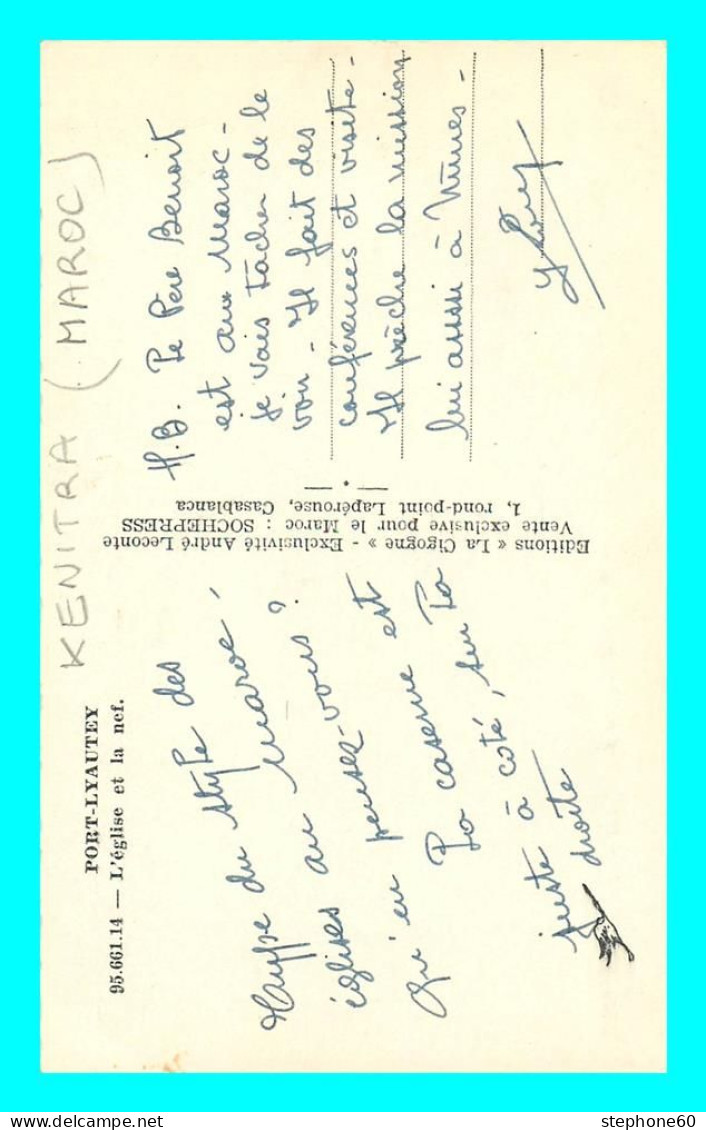 KENITRA (MAROC)
PORT-LYAUTEY
95.661.14 — L'église et la nef.
Type du style des
églises au Maroc.
Qu'en pensez-vous ?
La caserne est
juste à côté, sur la
droite
Editions « La Cigogne » - Exclusivité André Leconte
Vente exclusive pour le Maroc : SOCHEPRESS
1, rond-point Lapérouse, Casablanca
N.B. Le Père Benoit
est au Maroc -
Je vais tacher de le
voir - Il fait des
conférences et visite -
Il prêche la mission
lui aussi à Nimes -
stephone60